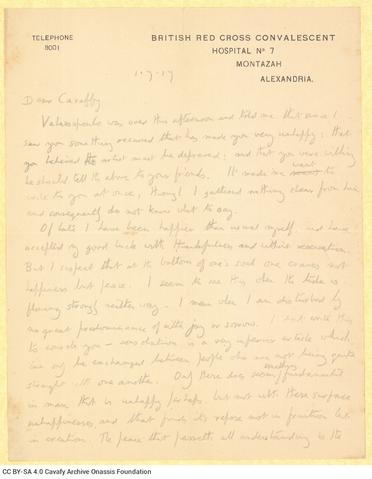 TELEPHONE
8001
BRITISH RED CROSS CONVALESCENT
HOSPITAL Nº 7
MONTAZAH
ALEXANDRIA.
1-7-17
Dear Cavaffy
Valassopoulo was over this afternoon and told me that since I
saw you something occurred that has made you very unhappy; that
you believed the artist must be depraved; and that you were willing
he should tell the above to your friends. It made me want to
write to you at once, though I gathered nothing clear from him
and consequently do not know what to say.
Of late I have been happier than usual myself, and have
accepted my good luck with thankfulness and without reservation.
But I suspect that at the bottom of one's soul one craves not
happiness but peace. I seem to see this when the tide is
flowing strongly neither way - I mean when I am disturbed by
no great predominance of either joy or sorrow. I don't write this
to console you - consolation is a very inferior article which
can only be exchanged between people who are not being quite
straight with one another. Only there does seem something fundamental
in man that is unhappy perhaps, but not with these surface
unhappinesses, and that finds its repose not in fruition but
in creation. The peace that passeth all understanding is the
CC BY-SA 4.0 Cavafy Archive Onassis Foundation